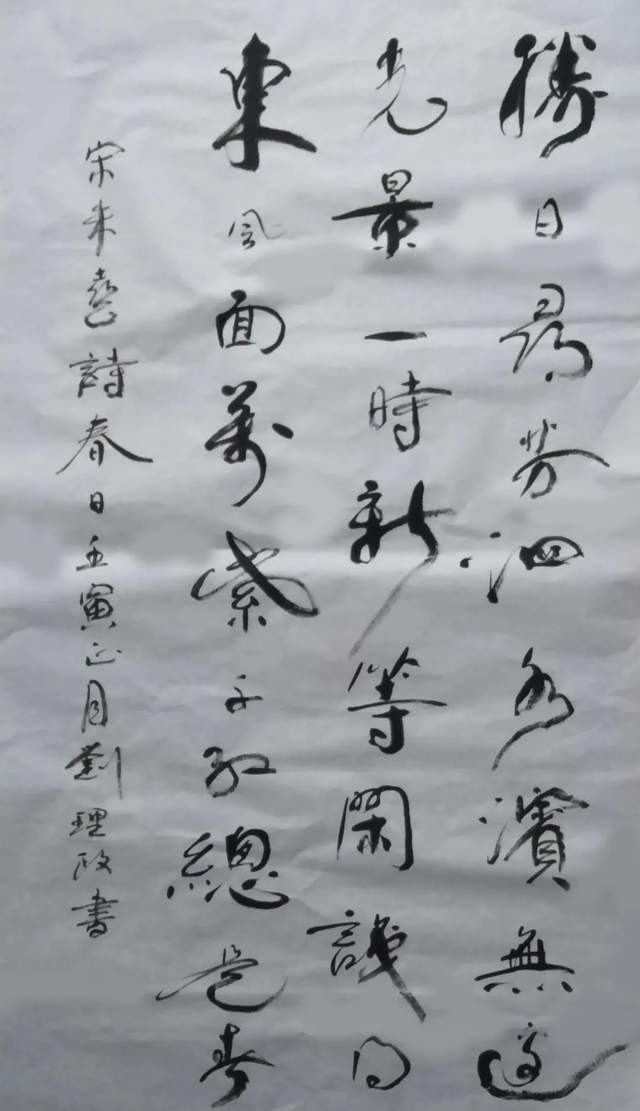 勝日尋芳泗水濱無邊
光景一時新等閑識得
東風面萬紫千紅總是春
宋朱熹詩春日壬寅正月劉理政書